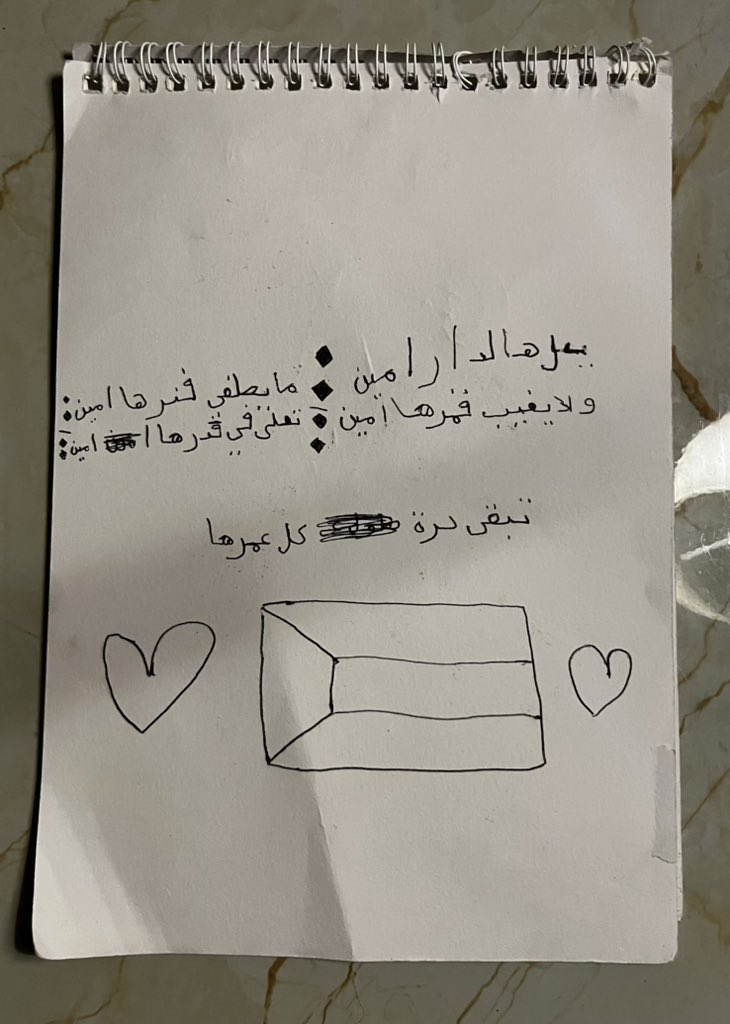 هالدار امين : ما يطفى فنرها امين :
ولا يغيب قمرها امين : تعلى في قدرها امين :
تبقى حرة كل عمرها